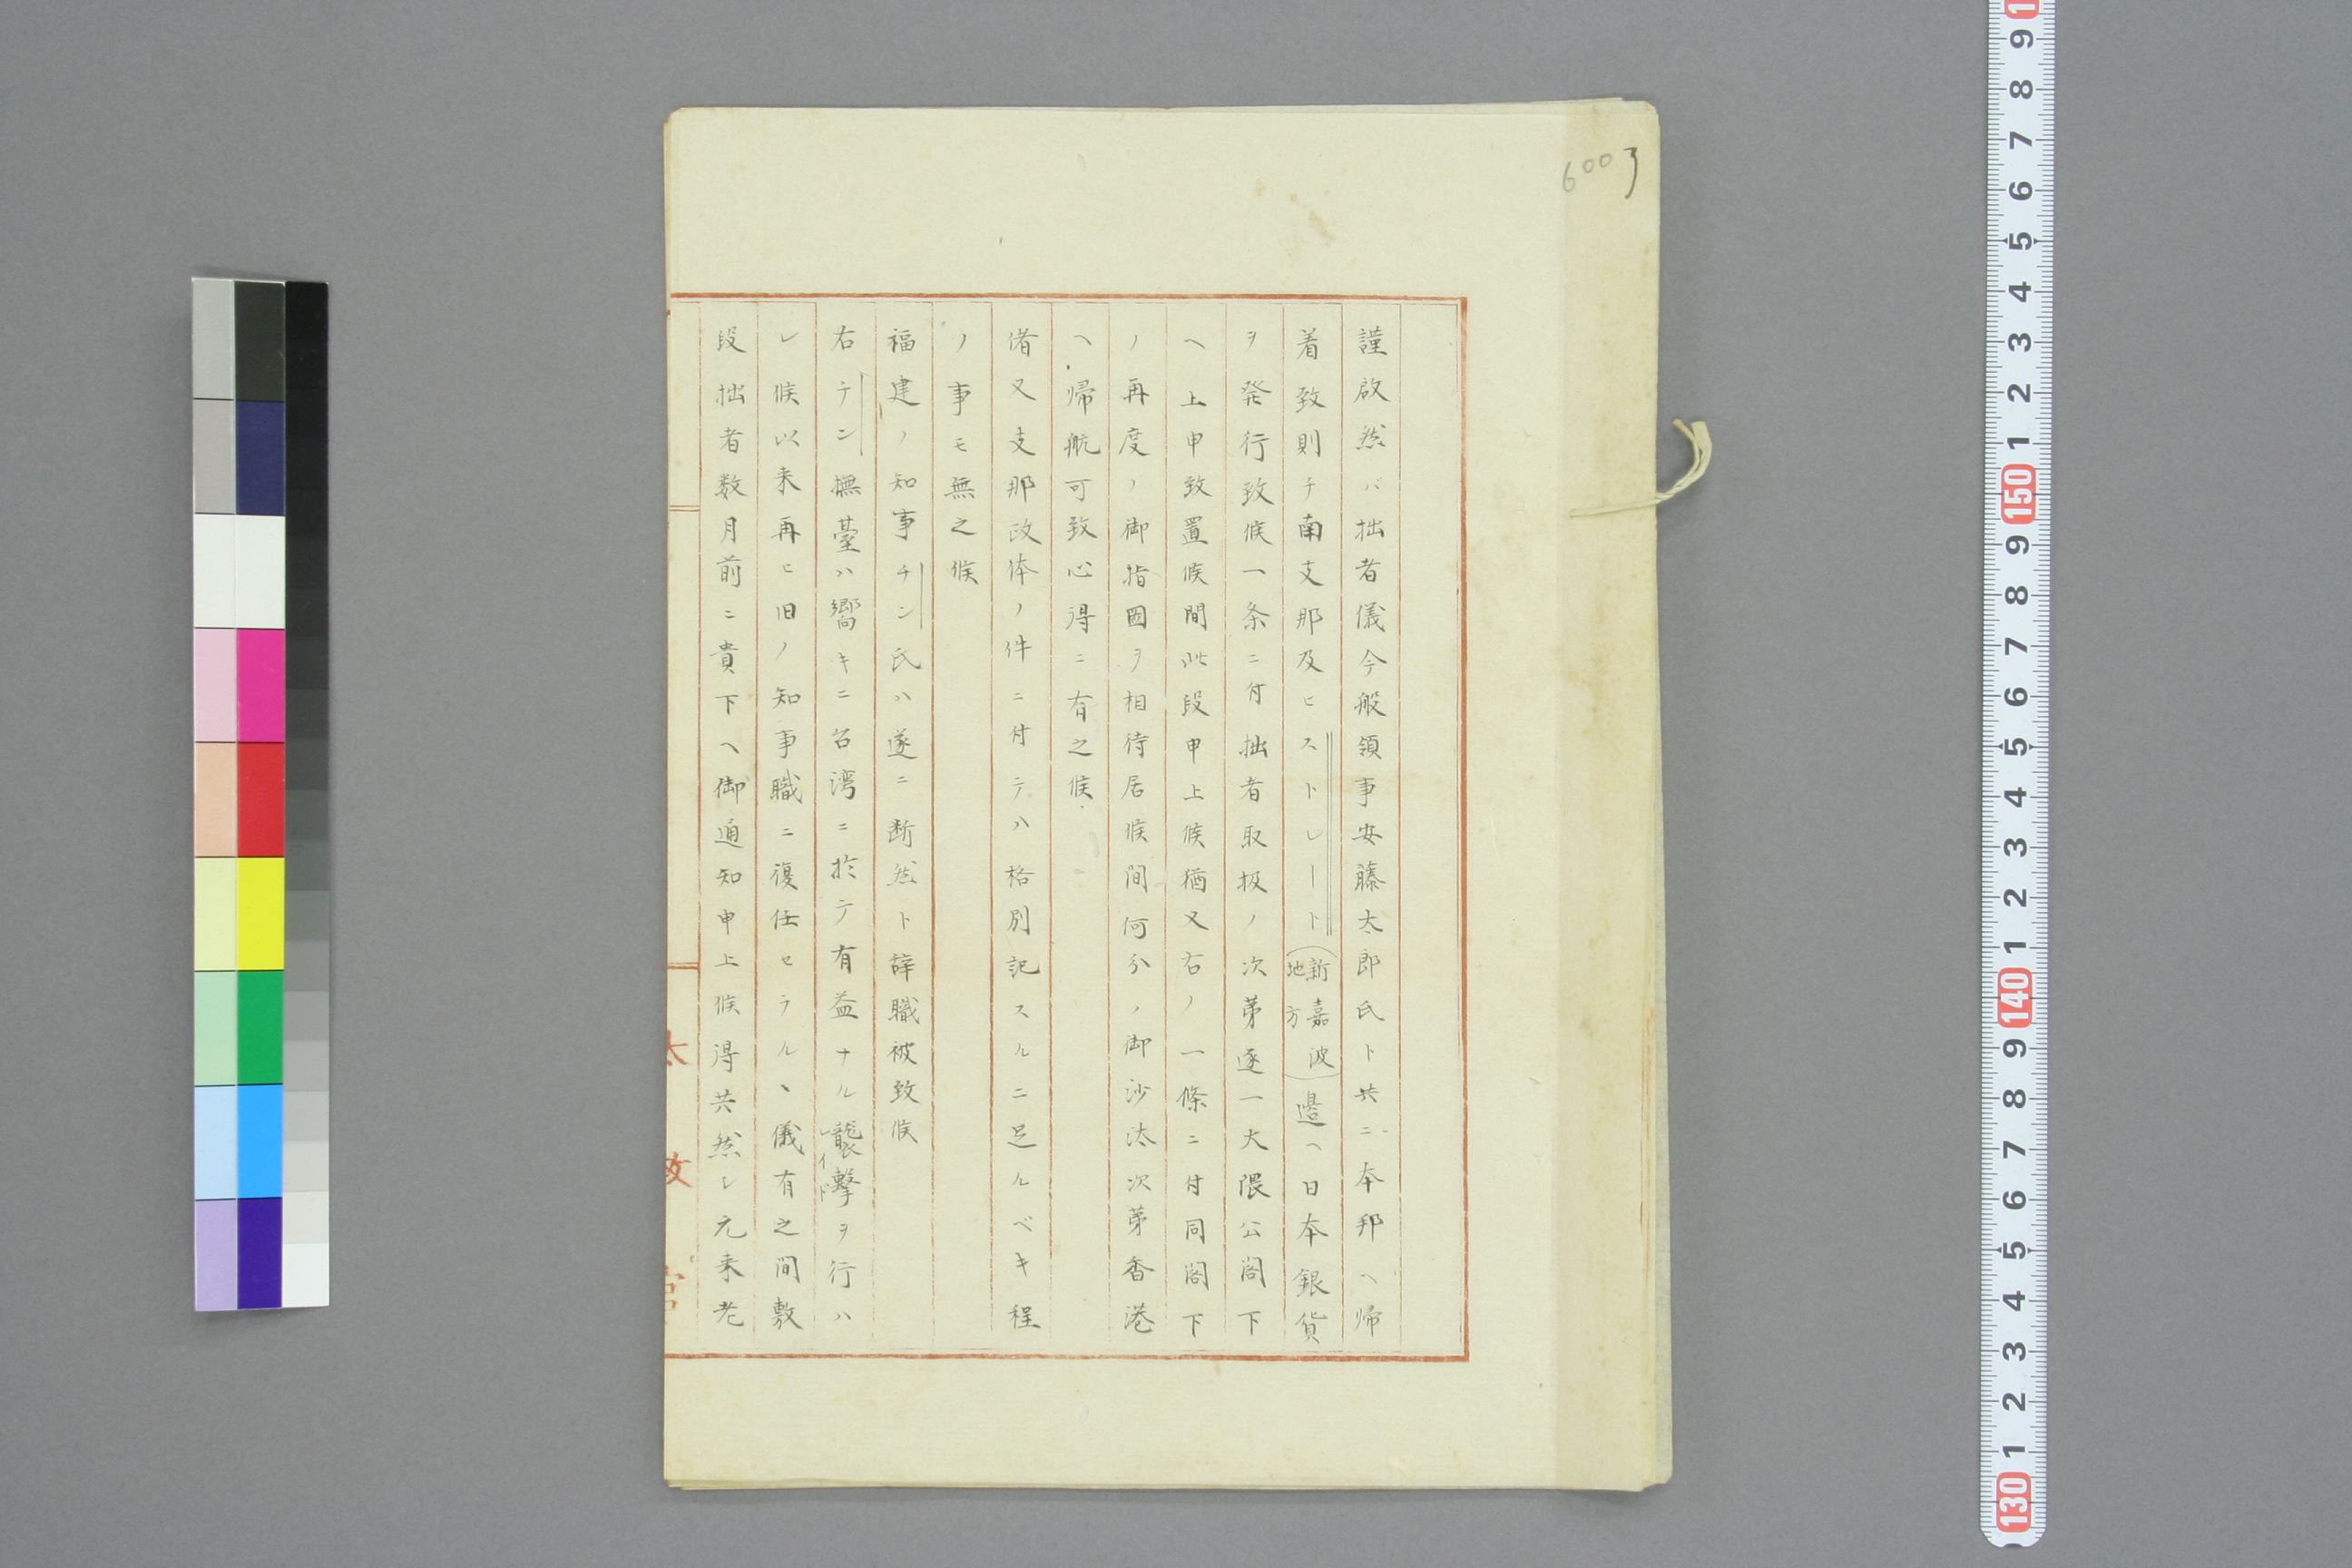 謹啟然バ拙者儀今般領事安藤太郎氏ト共ニ本邦ヘ帰
着致則チ南支那及ヒストレート(新嘉波地方)邉ヘ日本銀貨
ヲ発行致候一条ニ付拙者取扱ノ次苐逐一大隈公閣下
ヘ上申致置候間此段申上候猶又右ノ一條ニ付同閣下
ノ再度ノ御指圖ヲ相待居候間何分ノ御沙汰次苐香港
ヘ帰航可致心得ニ有之候
偖又支那政体ノ件ニ付テハ格別記スルニ足ルベキ程
ノ事モ無之候
福建ノ知事チン氏ハ遂ニ断然ト辞職被致候
右チン撫臺ハ嚮キニ台湾ニ於テ有益ナル襲撃ヲ行ハ
レ候以来再ヒ旧ノ知事職ニ復任セラルヽ儀有之間敷
段拙者数月前ニ貴下ヘ御通知申上候得共然レ元来老
6003